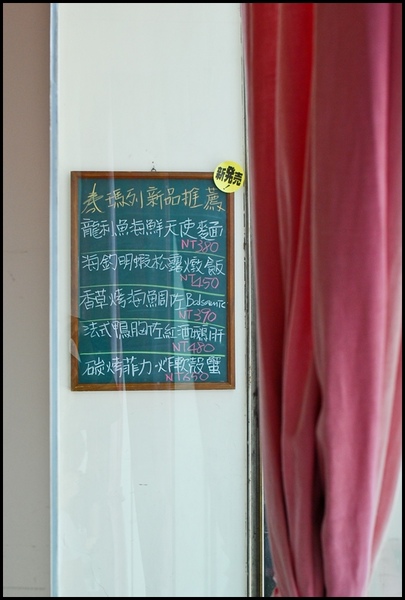 新発売
泰瑪利新品推薦
龍利魚海鮮天使麵
NT380
海鈞明蝦松露燉飯
NT450
香草烤海鯛佐Balsamic
NT390
法式鴨胸佐紅酒鵝肝
NT480
碳烤菲力炸軟殼蟹
NT650